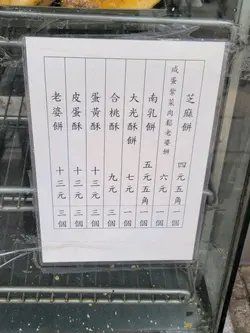 芝麻餅 四元五角 一個
咸蛋紫菜肉鬆老婆餅 六元 一個
南乳餅 五元五角 一個
大光酥餅 七元 一個
合桃酥 九元 三個
蛋黃酥 十三元 三個
皮蛋酥 十三元 三個
老婆餅 十三元 三個